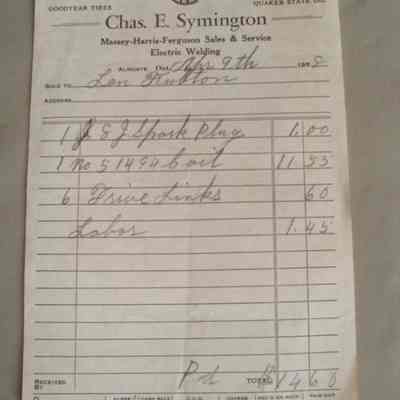 GOODYEAR TIRES QUAKER STATE OIL
Chas. E. Symington
Massey-Harris-Ferguson Sales & Service
Electric Welding
Almonte Ont. Apr 9th 1958
Sold to Len
Address
1 J & J Spark Plug 1.00
1 No 51494 Coil 11 55
6 Drive Links 60
Labor 1.45
Received By Pd Total $14 60